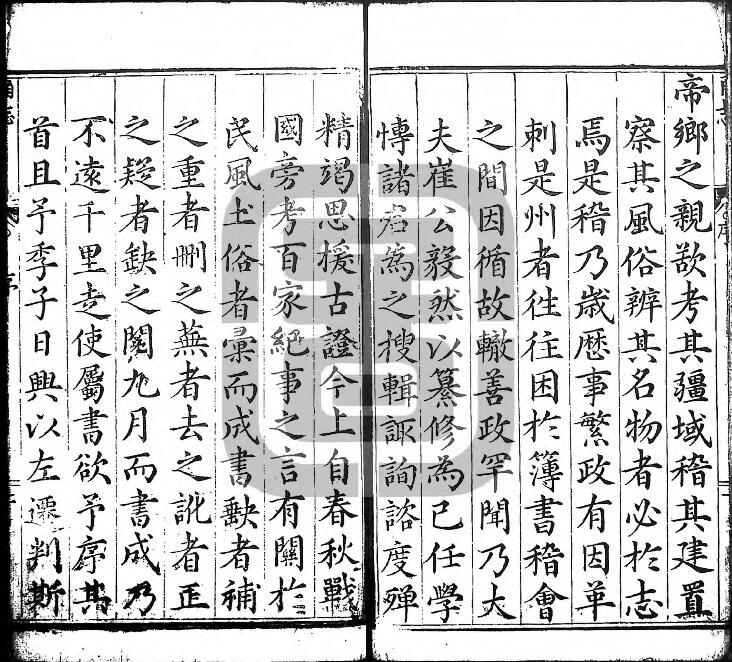 帝鄉之親欲考其疆域稽其建置
察其風俗辨其名物者必於志
焉是稽乃歲歷事繁政有因革
刺是州者徃往困於簿書稽會
之間因循故轍善政罕聞乃大
夫崔公毅然以纂修為己任學
慱諸君為之搜輯諏詢諮度殫
精竭思援古證今上自春秋戰
國旁考百家紀事之言有關於
民風土俗者彙而成書缺者補
之重者刪之蕪者去之訛者正
之疑者缺之閱九月而書成乃
不遠千里走使屬書欲予序其
首且予季子日興以左遷判斯
序